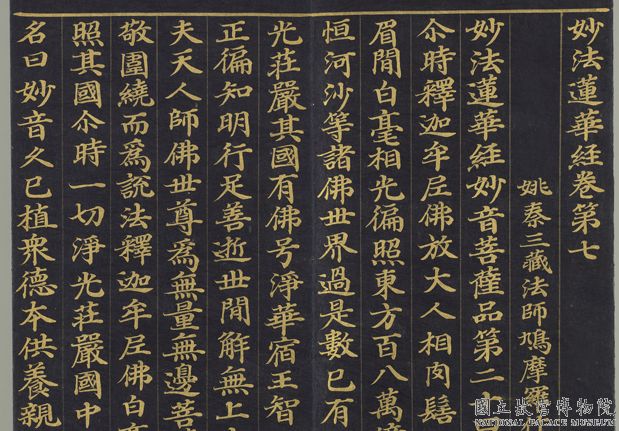 妙法蓮華經卷第七
姚秦三藏法師鳩摩羅
妙法蓮華經妙音菩薩品第二
尒時釋迦牟尼佛放大人相肉髻
眉間白毫相光徧照東方百八萬
恒河沙等諸佛世界過是數已有
光莊嚴其國有佛号淨華宿王智
正徧知明行足善逝世間解無上
夫天人師佛世尊爲無量無邊菩
敬圍繞而爲說法釋迦牟尼佛白
照其國尒時一切淨光莊嚴國中
名曰妙音久已植衆德本供養親
國立故宮博物院
NATIONAL PALACE MUSEUM